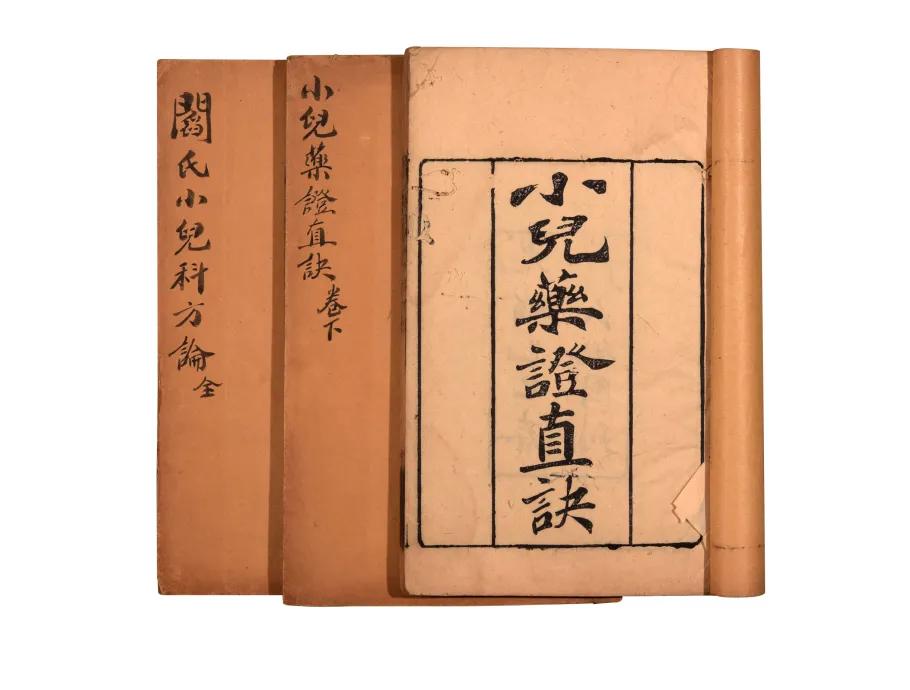 小兒藥證直訣
小兒藥證直訣 卷下
閻氏小兒科方論 全